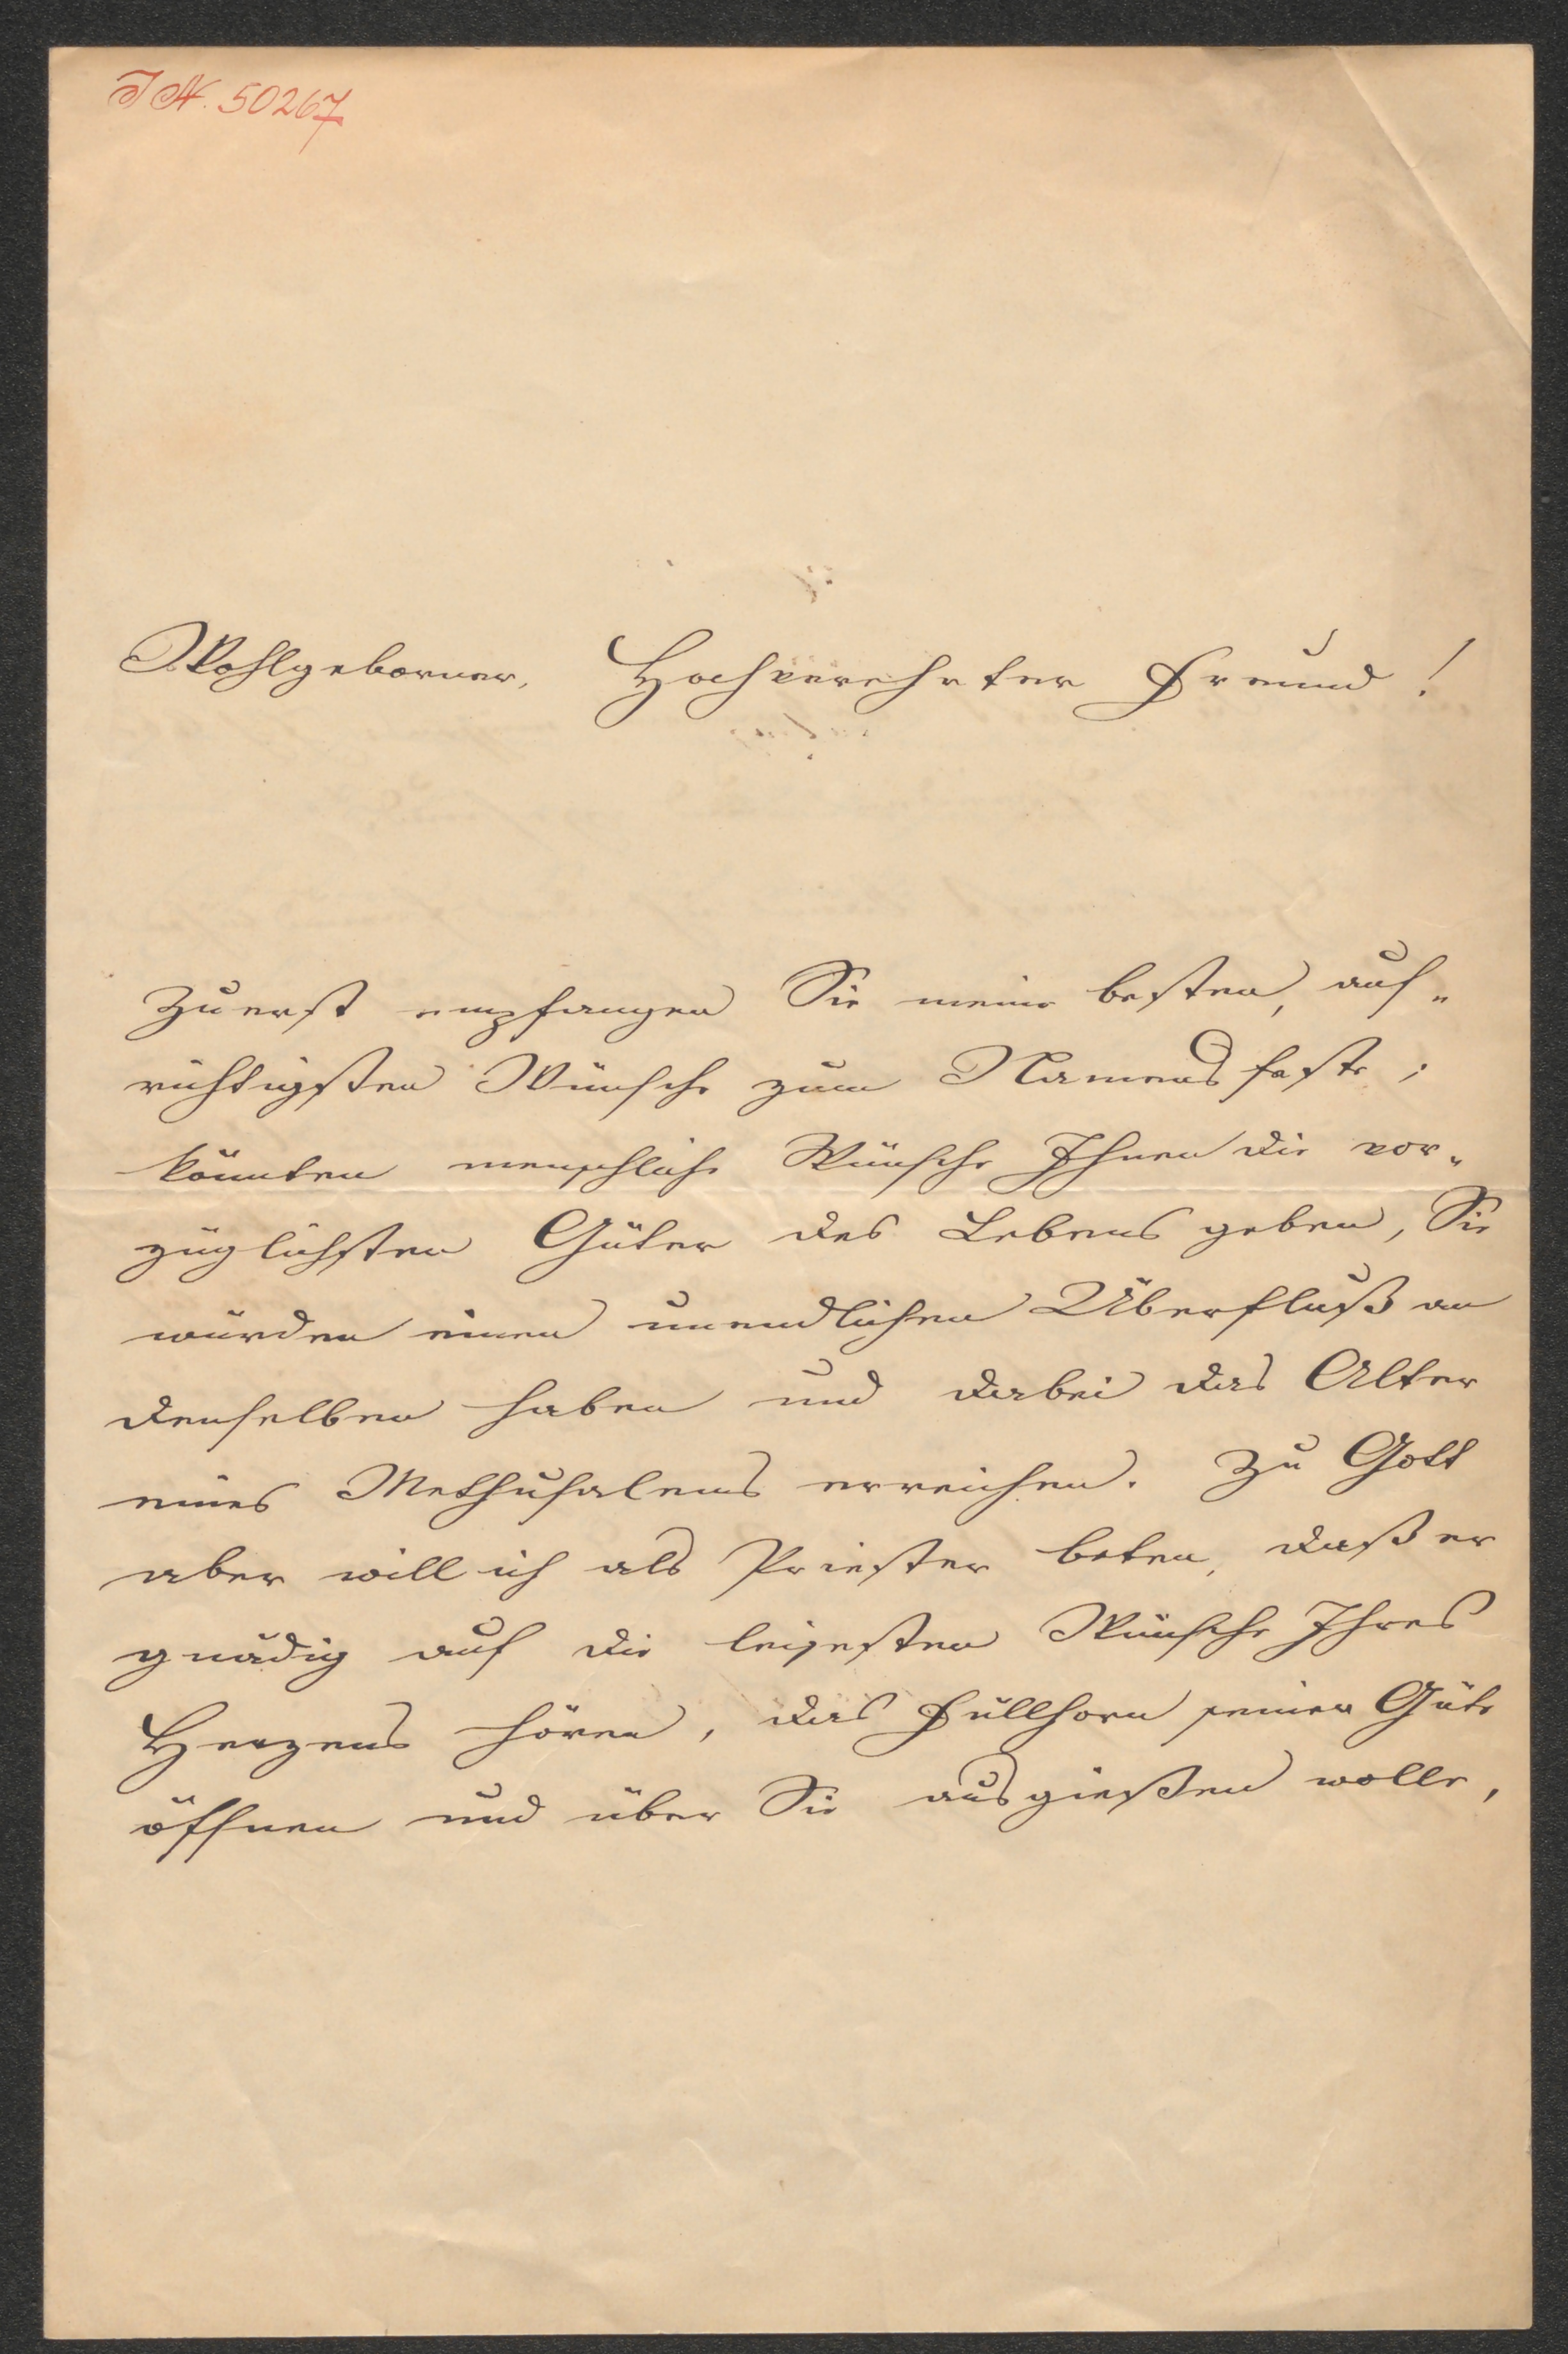 IN. 50267
Wohlgeborner, Hochverehrter Freund!
Zuerst empfangen Sie meine besten, auf„
richtigsten Wünsche zum Namensfeste;
könnten menschliche Wünsche Ihnen die vor„
züglichsten Güter des Lebens geben, Sie
würden einen unendlichen Überfluß an
denselben haben und dabei das Alter
eines Methusalems erreichen. Zu Gott
aber will ich als Priester beten, daß er
gnädig auf die leisesten Wünsche Ihres
Herzens hören, das Füllhorn seiner Güte
öffnen und über Sie ausgießen wolle,